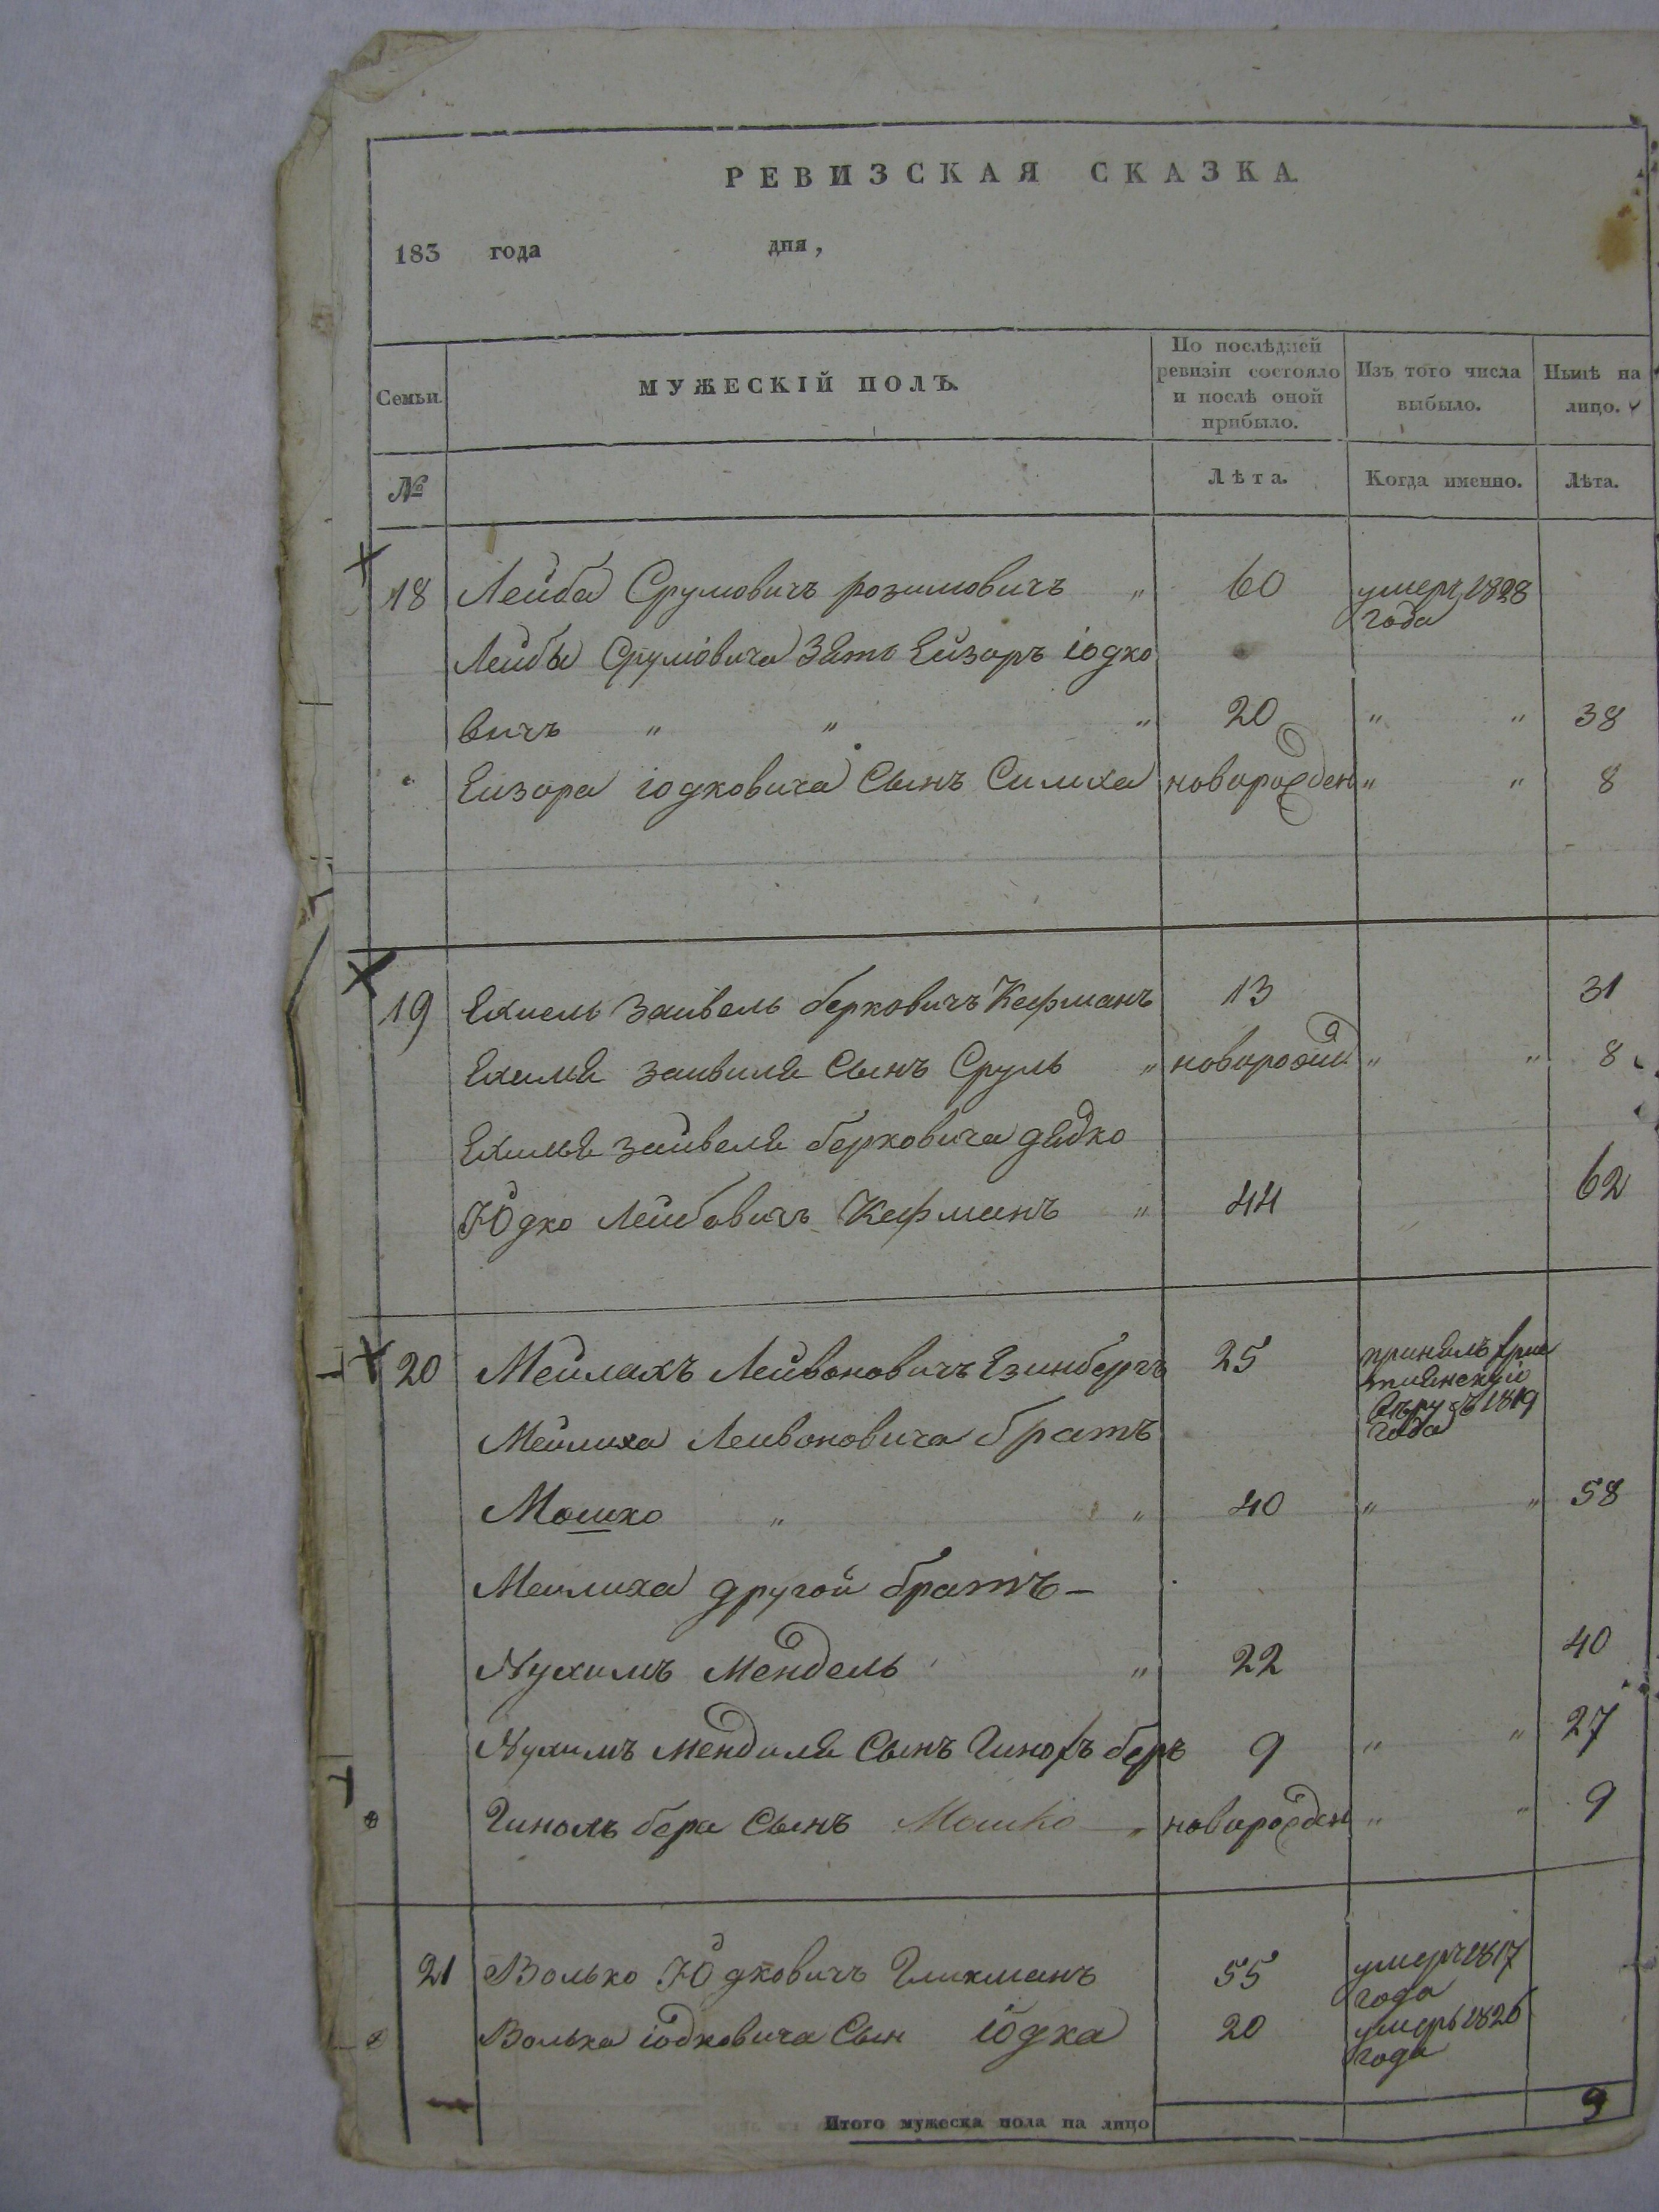 РЕВИЗСКАЯ СКАЗКА.
183 года дня,
Семьи. МУЖЕСКІЙ ПОЛЪ. По послѣдней ревизіи состояло и послѣ оной прибыло. Изъ того числа выбыло. Нынѣ на лицо.
№ Лѣта. Когда именно. Лѣта.
18 Лейба Срумовичъ розимовичъ " 60 умеръ 1828 года
Лейбы Срумовича Зять Ейзоръ іодко
вичъ " " " 20 " " 38
Еизора іодковича Сынъ Симха новорожден " " 8
19 Ехиель Заивель берковичъ Кефманъ 13 31
Ехиля заивиля Сынъ Сруль " новорожд " " 8
Ехиля заивеля берковича дядко
Юдко Лейбовичъ Кефманъ " 44 62
20 Мейлахъ Лейвоновичъ Езинбергъ 25 принялъ хрис тіянскую вѣру въ 1819 года
Мейлиха Леивоновича братъ
Мошко " " 40 " " 58
Меилиха другой братъ –
Нухимъ Мендель " 22 40
Нухимъ мендиля Сынъ беръ 9 " " 27
бера Сынъ Мошко " новорожден " " 9
21 Волько Юдковичъ Гликманъ 55 умеръ 1817 года
Волька іодковича Сын іодка 20 умеръ 1826 года
Итого мужеска пола на лицо 9